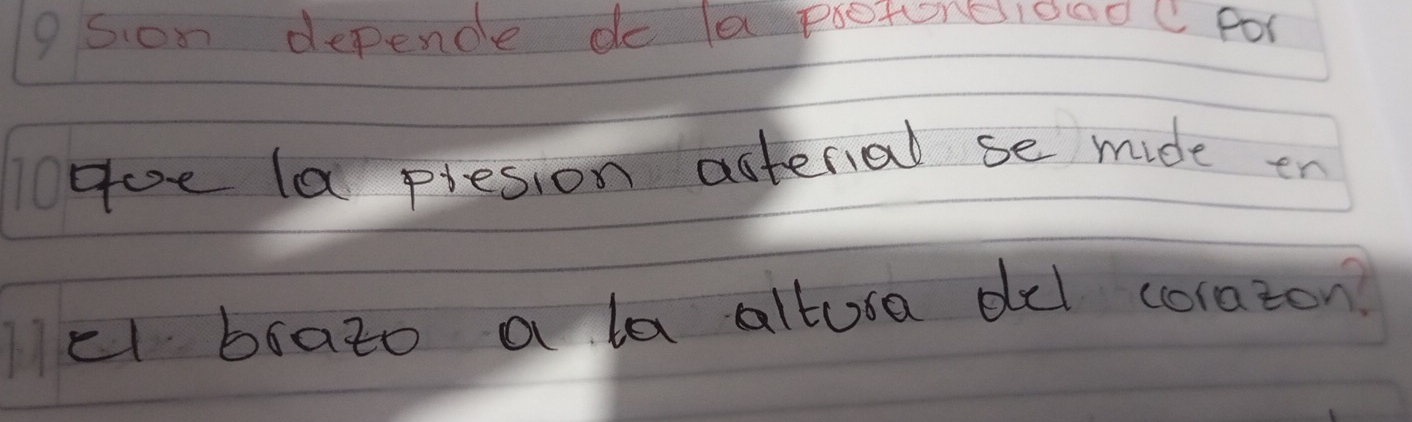 9 sion depende de la profundidad ¿ Por
10 que la presion arterial se mide en
11 el brazo a la altura del corazon?